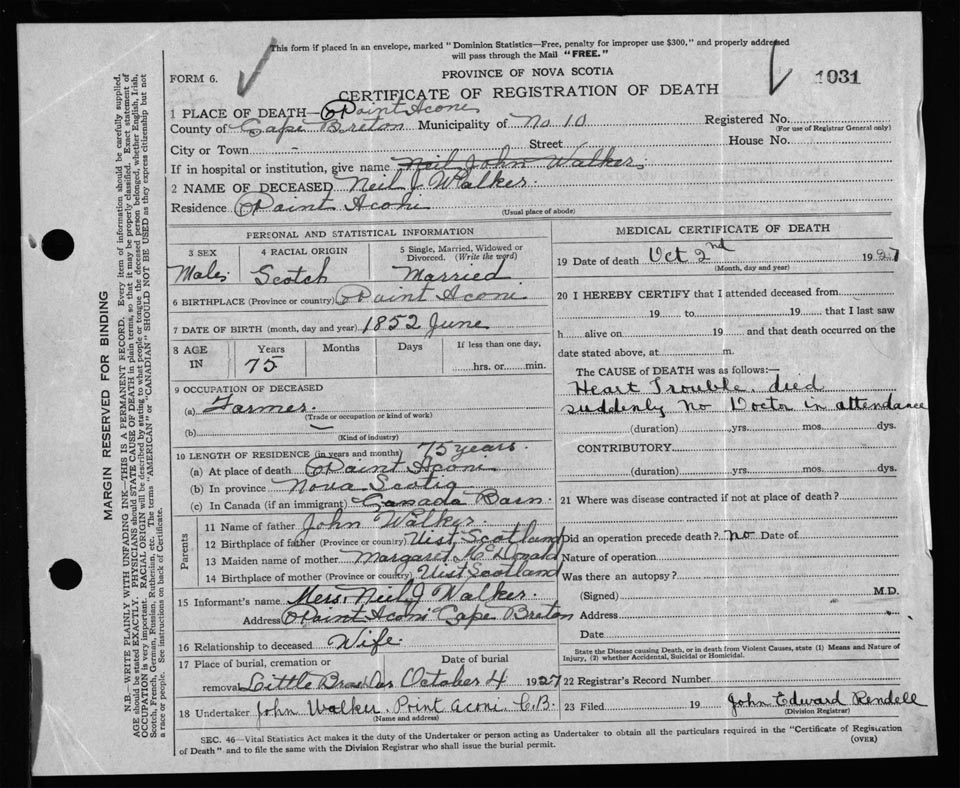 This form if placed in an envelope, marked "Dominion Statistics—Free, penalty for improper use $300," and properly addressed
will pass through the Mail "FREE."
FORM 6.
PROVINCE OF NOVA SCOTIA
1031
CERTIFICATE OF REGISTRATION OF DEATH
1 PLACE OF DEATH— Point Aconi
County of Cape Breton Municipality of No 10 Registered No.
(For use of Registrar General only)
City or Town - Street House No.
If in hospital or institution, give name Neil John Walker
2 NAME OF DECEASED Neil J Walker.
Residence Point Aconi
(Usual place of abode)
PERSONAL AND STATISTICAL INFORMATION
3 SEX 4 RACIAL ORIGIN 5 Single, Married, Widowed or Divorced. (Write the word)
Male Scotch Married
6 BIRTHPLACE (Province or country) Point Aconi
7 DATE OF BIRTH (month, day and year) 1852 June
8 AGE IN Years Months Days If less than one day,
75 hrs. or min.
9 OCCUPATION OF DECEASED
(a) Farmer.
(Trade or occupation or kind of work)
(b)
(Kind of industry)
10 LENGTH OF RESIDENCE (in years and months) 75 years.
(a) At place of death Point Aconi
(b) In province Nova Scotia
(c) In Canada (if an immigrant) Canada Born
Parents
11 Name of father John Walker.
12 Birthplace of father (Province or country) Uist Scotland
13 Maiden name of mother Margaret McDonald
14 Birthplace of mother (Province or country) Uist Scotland
15 Informant's name Mrs. Neil J Walker.
Address Point Aconi Cape Breton
16 Relationship to deceased Wife.
17 Place of burial, cremation or removal Little Bras d'or Date of burial October 4 1927
18 Undertaker John Walker. Point Aconi C.B.
(Name and address)
MEDICAL CERTIFICATE OF DEATH
19 Date of death Oct 2nd 1927
(Month, day and year)
20 I HEREBY CERTIFY that I attended deceased from
19 to 19 that I last saw
h alive on 19 and that death occurred on the
date stated above, at m.
The CAUSE of DEATH was as follows:—
Heart Trouble, died
suddenly no Doctor in attendance
(duration) yrs. mos. dys.
CONTRIBUTORY
(duration) yrs. mos. dys.
21 Where was disease contracted if not at place of death?
Did an operation precede death? no Date of
Nature of operation
Was there an autopsy?
(Signed) M.D.
Address
Date
State the Disease causing Death, or in death from Violent Causes, state (1) Means and Nature of
Injury, (2) whether Accidental, Suicidal or Homicidal.
22 Registrar's Record Number
23 Filed 19 John Edward Rendell
(Division Registrar)
SEC. 46—Vital Statistics Act makes it the duty of the Undertaker or person acting as Undertaker to obtain all the particulars required in the "Certificate of Registration
of Death" and to file the same with the Division Registrar who shall issue the burial permit.
(OVER)
MARGIN RESERVED FOR BINDING
N.B.—WRITE PLAINLY WITH UNFADING INK—THIS IS A PERMANENT RECORD. Every item of information should be carefully supplied.
AGE should be stated EXACTLY. PHYSICIANS should STATE CAUSE OF DEATH in plain terms, so that it may be properly classified. Exact statement of
OCCUPATION is very important. RACIAL ORIGIN will be described by stating to what people or tongue the deceased person belonged, whether English, Irish,
Scotch, French, German, Russian, Ruthenian, etc. The terms "AMERICAN" or "CANADIAN" SHOULD NOT BE USED as they express citizenship but not
a race or people. See instructions on back of Certificate.